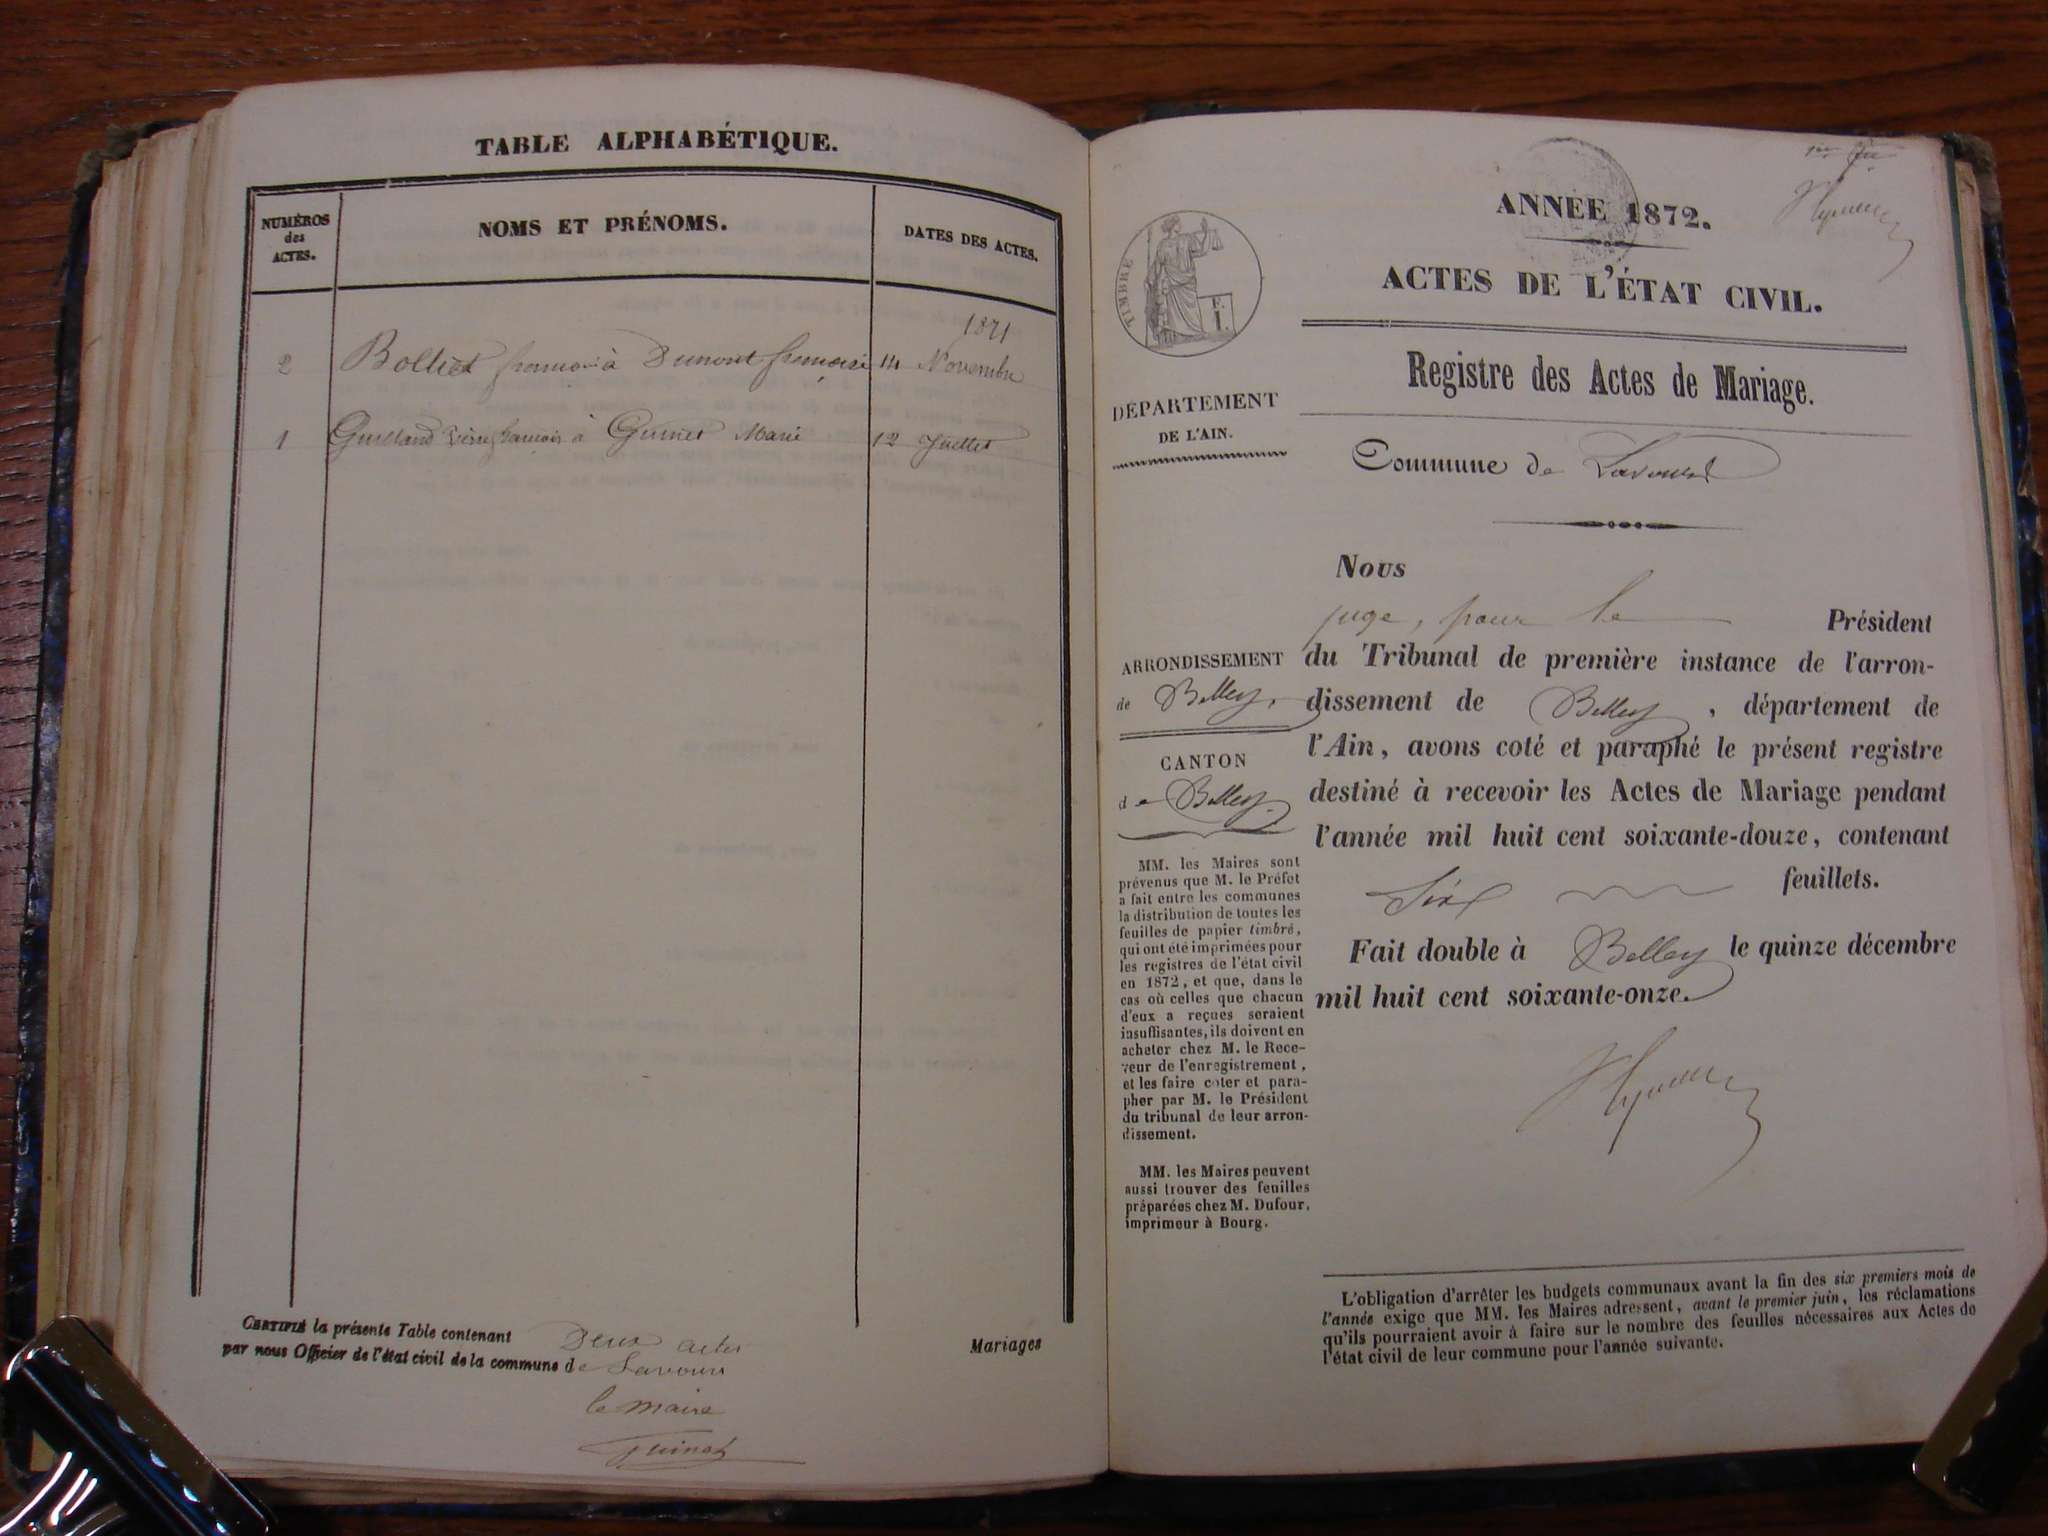 TABLE ALPHABÉTIQUE.
NUMÉROS
des
ACTES.
NOMS ET PRÉNOMS.
DATES DES ACTES.
1871
2 à Dumont 14 Novembre
1 Pierre françois à Marie 12 Juillet
CERTIFIÉ la présente Table contenant Deux actes Mariages
par nous Officier de l'état civil de la commune de Lavours
le maire
TIMBRE
F.
I.
ANNÉE 1872.
ACTES DE L'ÉTAT CIVIL.
Registre des Actes de Mariage.
DÉPARTEMENT
DE L'AIN.
Commune de Lavours
Nous
juge, pour le Président
du Tribunal de première instance de l'arron-
dissement de Belley, département de
l'Ain, avons coté et paraphé le présent registre
destiné à recevoir les Actes de Mariage pendant
l'année mil huit cent soixante-douze, contenant
Six feuillets.
Fait double à Belley le quinze décembre
mil huit cent soixante-onze.
ARRONDISSEMENT
de Belley,
CANTON
de Belley.
MM. les Maires sont
prévenus que M. le Préfet
a fait entre les communes
la distribution de toutes les
feuilles de papier timbré,
qui ont été imprimées pour
les registres de l'état civil
en 1872, et que, dans le
cas où celles que chacun
d'eux a reçues seraient
insuffisantes, ils doivent en
acheter chez M. le Rece-
veur de l'enregistrement,
et les faire coter et para-
pher par M. le Président
du tribunal de leur arron-
dissement.
MM. les Maires peuvent
aussi trouver des feuilles
préparées chez M. Dufour,
imprimeur à Bourg.
L'obligation d'arrêter les budgets communaux avant la fin des six premiers mois de
l'année exige que MM. les Maires adressent, avant le premier juin, les réclamations
qu'ils pourraient avoir à faire sur le nombre des feuilles nécessaires aux Actes de
l'état civil de leur commune pour l'année suivante.